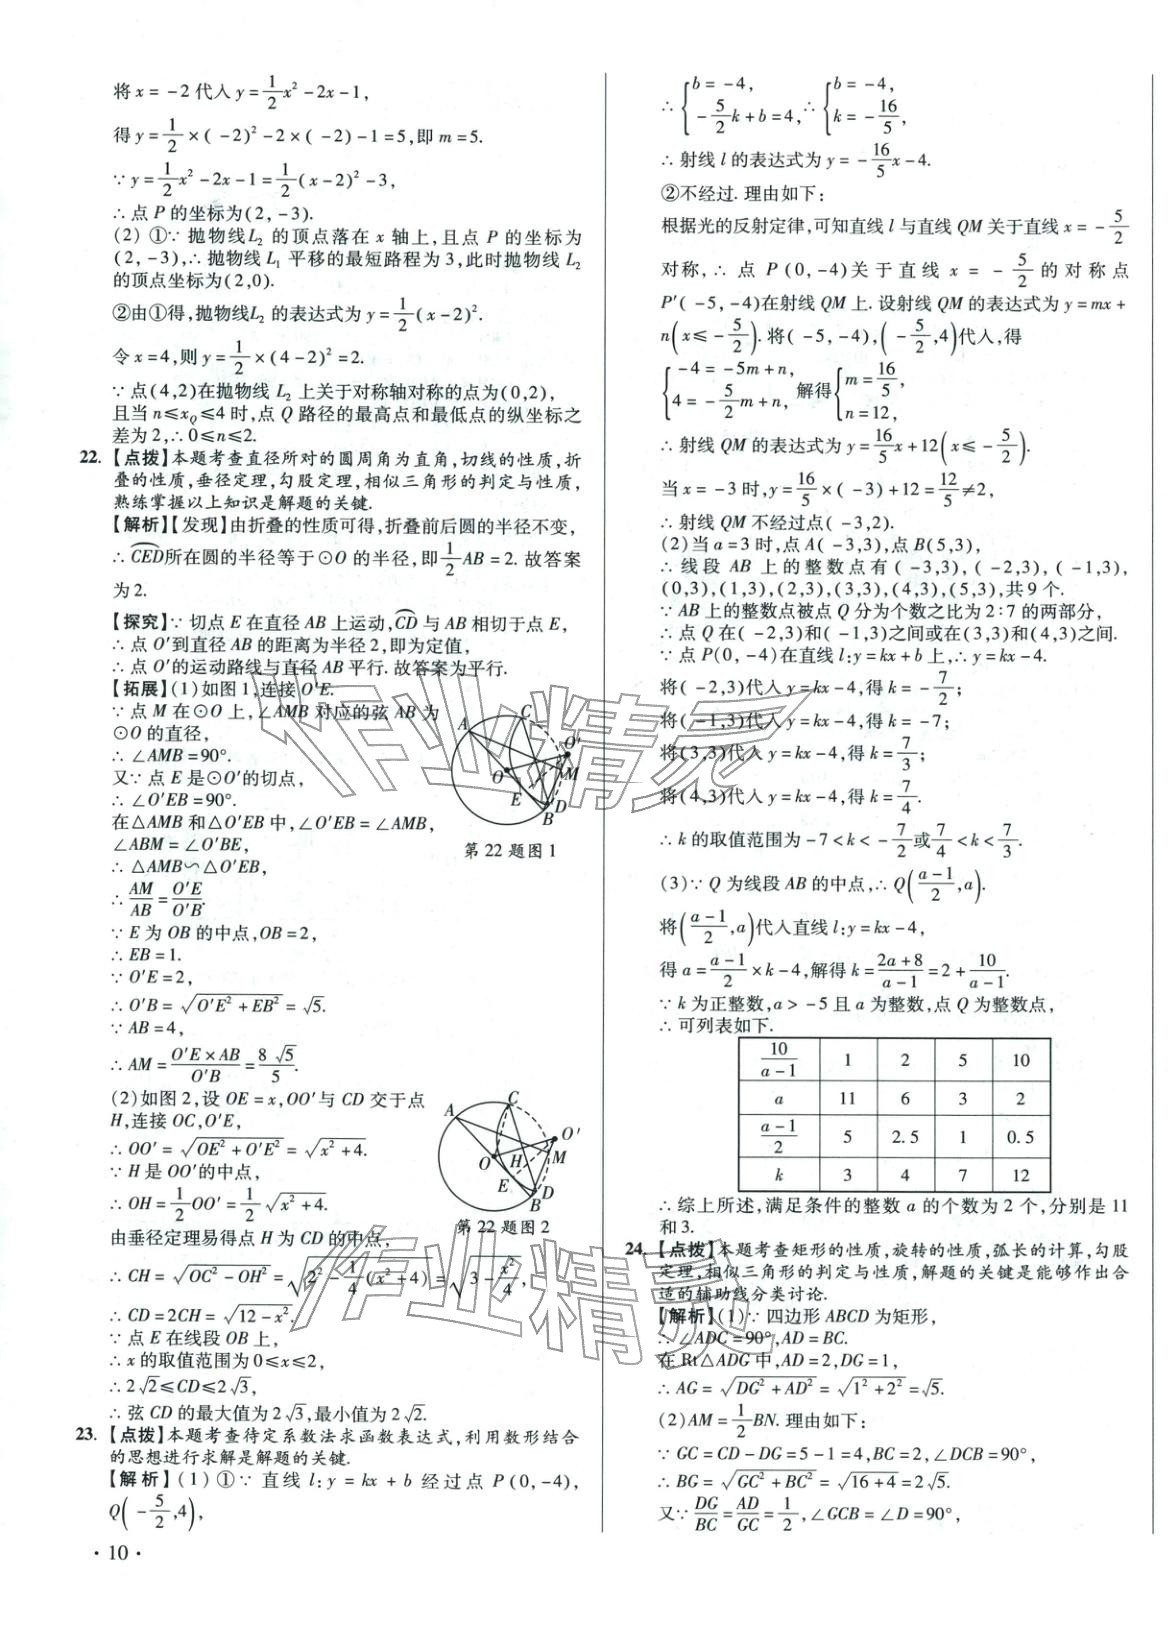 将 x = -2 代入 y = 1/2 x² - 2x - 1,
得 y = 1/2 × (-2)² - 2 × (-2) - 1 = 5, 即 m = 5.
∵ y = 1/2 x² - 2x - 1 = 1/2 (x-2)² - 3,
∴ 点 P 的坐标为(2, -3).
(2) ①∵ 抛物线L₂ 的顶点落在 x 轴上, 且点 P 的坐标为
(2, -3), ∴ 抛物线 L₁ 平移的最短路程为 3, 此时抛物线 L₂
的顶点坐标为(2,0).
②由①得, 抛物线L₂ 的表达式为 y = 1/2 (x-2)².
令 x = 4, 则 y = 1/2 × (4-2)² = 2.
∵ 点(4,2)在抛物线 L₂ 上关于对称轴对称的点为(0,2),
且当 n ≤ x_Q ≤ 4 时, 点 Q 路径的最高点和最低点的纵坐标之
差为 2, ∴ 0 ≤ n ≤ 2.
22. 【点拨】本题考查直径所对的圆周角为直角, 切线的性质, 折
叠的性质, 垂径定理, 勾股定理, 相似三角形的判定与性质,
熟练掌握以上知识是解题的关键.
【解析】【发现】由折叠的性质可得, 折叠前后圆的半径不变,
∴ ⌒CED所在圆的半径等于⊙O 的半径, 即 1/2 AB = 2. 故答案
为 2.
【探究】∵ 切点 E 在直径 AB 上运动, ⌒CD 与 AB 相切于点 E,
∴ 点 O′到直径 AB 的距离为半径 2, 即为定值,
∴ 点 O′的运动路线与直径 AB 平行. 故答案为平行.
【拓展】(1)如图 1, 连接 O′E.
∵ 点 M 在⊙O 上, ∠AMB 对应的弦 AB 为
⊙O 的直径,
∴ ∠AMB = 90°.
又∵ 点 E 是⊙O′的切点,
∴ ∠O′EB = 90°.
在△AMB 和△O′EB 中, ∠O′EB = ∠AMB,
∠ABM = ∠O′BE,
∴ △AMB∽△O′EB,
∴ AM/AB = O′E/O′B.
∵ E 为 OB 的中点, OB = 2,
∴ EB = 1.
∵ O′E = 2,
∴ O′B = √(O′E² + EB²) = √5.
∵ AB = 4,
∴ AM = (O′E × AB)/O′B = 8√5/5.
A
C
O′
O
M
E
D
B
第 22 题图 1
(2)如图 2, 设 OE = x, OO′与 CD 交于点
H, 连接 OC, O′E,
∴ OO′ = √(OE² + O′E²) = √(x² + 4).
∵ H 是 OO′的中点,
∴ OH = 1/2 OO′ = 1/2 √(x² + 4).
由垂径定理易得点 H 为 CD 的中点,
A
C
O′
O
H
M
E
D
B
第 22 题图 2
∴ CH = √(OC² - OH²) = √(2² - 1/4 (x² + 4)) = √(3 - x²/4),
∴ CD = 2CH = √(12 - x²).
∵ 点 E 在线段 OB 上,
∴ x 的取值范围为 0 ≤ x ≤ 2,
∴ 2√2 ≤ CD ≤ 2√3,
∴ 弦 CD 的最大值为 2√3, 最小值为 2√2.
23. 【点拨】本题考查待定系数法求函数表达式, 利用数形结合
的思想进行求解是解题的关键.
【解析】(1) ①∵ 直线 l: y = kx + b 经过点 P(0, -4),
Q(-5/2, 4),
· 10 ·
∴ { b = -4, -5/2 k + b = 4, ∴ { b = -4, k = -16/5,
∴ 射线 l 的表达式为 y = -16/5 x - 4.
②不经过. 理由如下:
根据光的反射定律, 可知直线 l 与直线 QM 关于直线 x = -5/2
对称, ∴ 点 P(0, -4)关于直线 x = -5/2 的对称点
P′(-5, -4)在射线 QM 上. 设射线 QM 的表达式为 y = mx +
n(x ≤ -5/2). 将(-5, -4), (-5/2, 4)代入, 得
{ -4 = -5m + n, 4 = -5/2 m + n, 解得 { m = 16/5, n = 12,
∴ 射线 QM 的表达式为 y = 16/5 x + 12 (x ≤ -5/2).
当 x = -3 时, y = 16/5 × (-3) + 12 = 12/5 ≠ 2,
∴ 射线 QM 不经过点(-3,2).
(2)当 a = 3 时, 点 A(-3,3), 点 B(5,3),
∴ 线段 AB 上的整数点有(-3,3), (-2,3), (-1,3),
(0,3), (1,3), (2,3), (3,3), (4,3), (5,3), 共 9 个.
∵ AB 上的整数点被点 Q 分为个数之比为 2:7 的两部分,
∴ 点 Q 在(-2,3)和(-1,3)之间或在(3,3)和(4,3)之间.
∵ 点 P(0, -4)在直线 l: y = kx + b 上, ∴
将(-2,3)代入 y = kx - 4, 得 k = -7/2;
将(-1,3)代入 y = kx - 4, 得 k = -7;
将(3,3)代入 y = kx - 4, 得 k = 7/3;
将(4,3)代入 y = kx - 4, 得 k = 7/4.
∴ k 的取值范围为 -7 < k < -7/2 或 7/4 < k < 7/3.
(3)∵ Q 为线段 AB 的中点, ∴ Q((a-1)/2, a).
将((a-1)/2, a)代入直线 l: y = kx - 4,
得 a = (a-1)/2 × k - 4, 解得 k = (2a+8)/(a-1) = 2 + 10/(a-1).
∵ k 为正整数, a > -5 且 a 为整数, 点 Q 为整数点,
∴ 可列表如下.
10/(a-1) 1 2 5 10
a 11 6 3 2
(a-1)/2 5 2.5 1 0.5
k 3 4 7 12
∴ 综上所述, 满足条件的整数 a 的个数为 2 个, 分别是 11
和 3.
24. 【点拨】本题考查矩形的性质, 旋转的性质, 弧长的计算, 勾股
定理, 相似三角形的判定与性质, 解题的关键是能够作出合
适的辅助线分类讨论.
【解析】(1)∵ 四边形 ABCD 为矩形,
∴ ∠ADC = 90°, AD = BC.
在 Rt△ADG 中, AD = 2, DG = 1,
∴ AG = √(DG² + AD²) = √(1² + 2²) = √5.
(2)AM = 1/2 BN. 理由如下:
∵ GC = CD - DG = 5 - 1 = 4, BC = 2, ∠DCB = 90°,
∴ BG = √(GC² + BC²) = √(16 + 4) = 2√5.
又∵ DG/BC = AD/GC = 1/2, ∠GCB = ∠D = 90°,
作业精灵
作业精灵